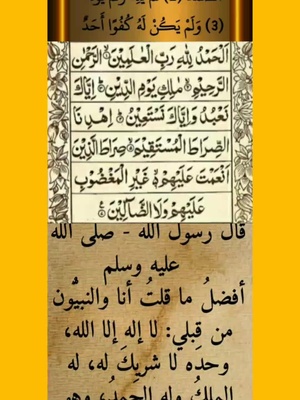 (3) وَلَمْ يَكُنْ لَهُ كُفُوًا أَحَدٌ
اَلْحَمْدُ لِلّٰهِ رَبِّ الْعٰلَمِيْنَ الرَّحْمٰنِ
الرَّحِيْمِ مٰلِكِ يَوْمِ الدِّيْنِ اِيَّاكَ
نَعْبُدُ وَاِيَّاكَ نَسْتَعِيْنُ اِهْدِنَا
الصِّرَاطَ الْمُسْتَقِيْمَ صِرَاطَ الَّذِيْنَ
اَنْعَمْتَ عَلَيْهِمْ غَيْرِ الْمَغْضُوْبِ
عَلَيْهِمْ وَلَا الضَّآلِّيْنَ
قال رسول الله - صلى الله
عليه وسلم
أفضلُ ما قلتُ أنا والنبيُّون
من قِبلي: لا إله إلا الله،
وحده لا شريكَ له، له
الملكُ وله الحمدُ، وهو